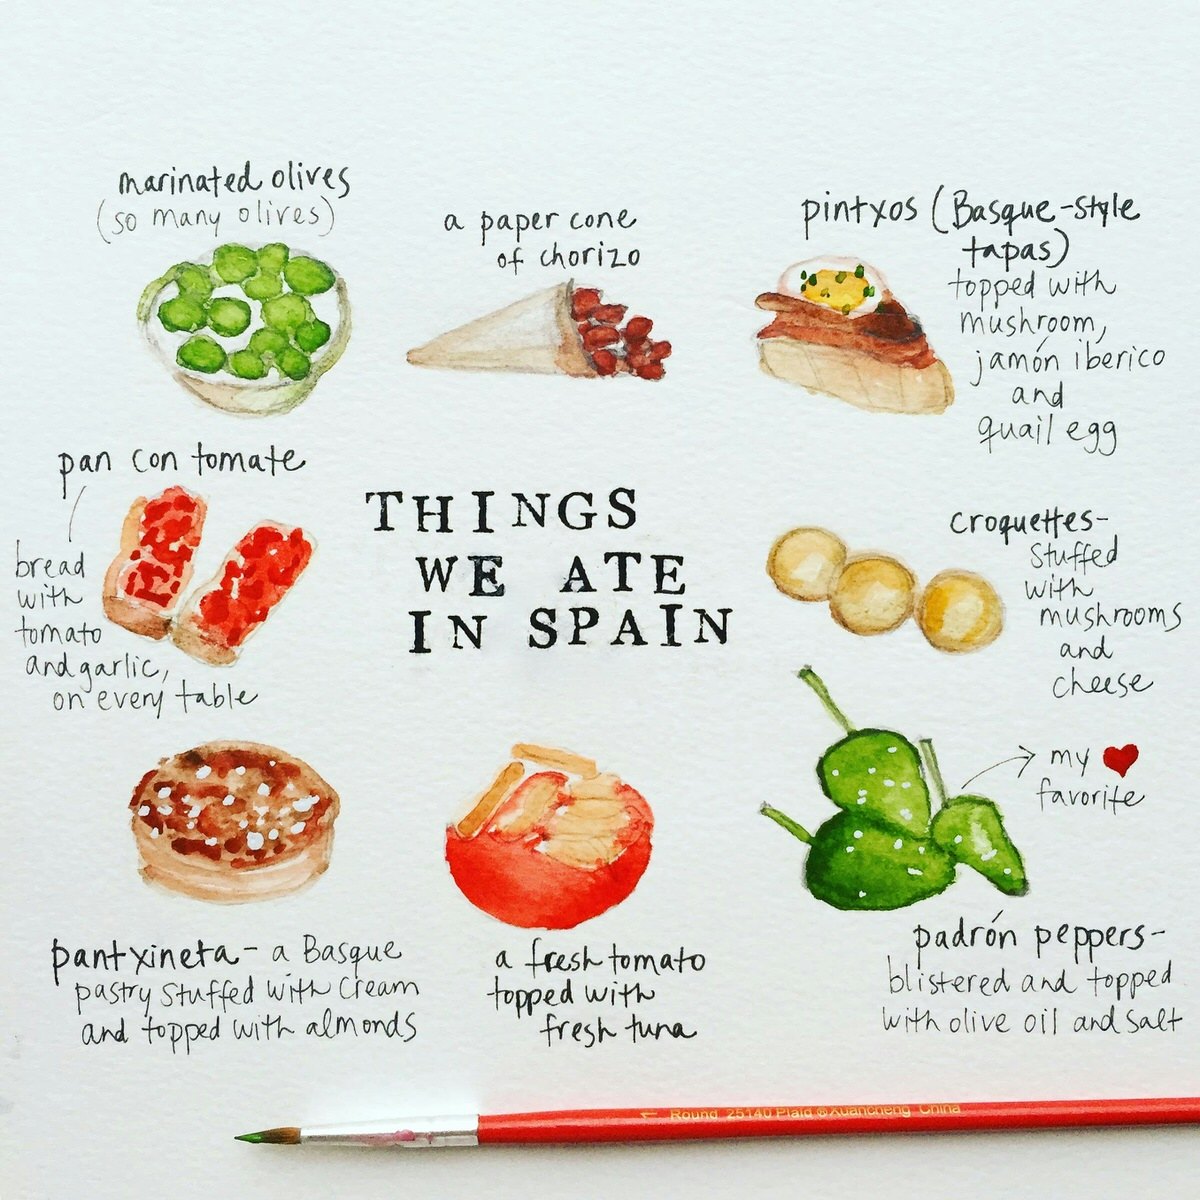 marinated olives
(so many olives)
a paper cone
of chorizo
pintxos (Basque-style
tapas)
topped with
mushroom,
jamón iberico
and
quail egg
pan con tomate
bread
with
tomato
and garlic,
on every table
THINGS
WE ATE
IN SPAIN
croquettes-
stuffed
with
mushrooms
and
cheese
my ♥
favorite
pantxineta- a Basque
pastry stuffed with cream
and topped with almonds
a fresh tomato
topped with
fresh tuna
padrón peppers-
blistered and topped
with olive oil and salt
1 Round 25140 Plaid ® Xuancheng China